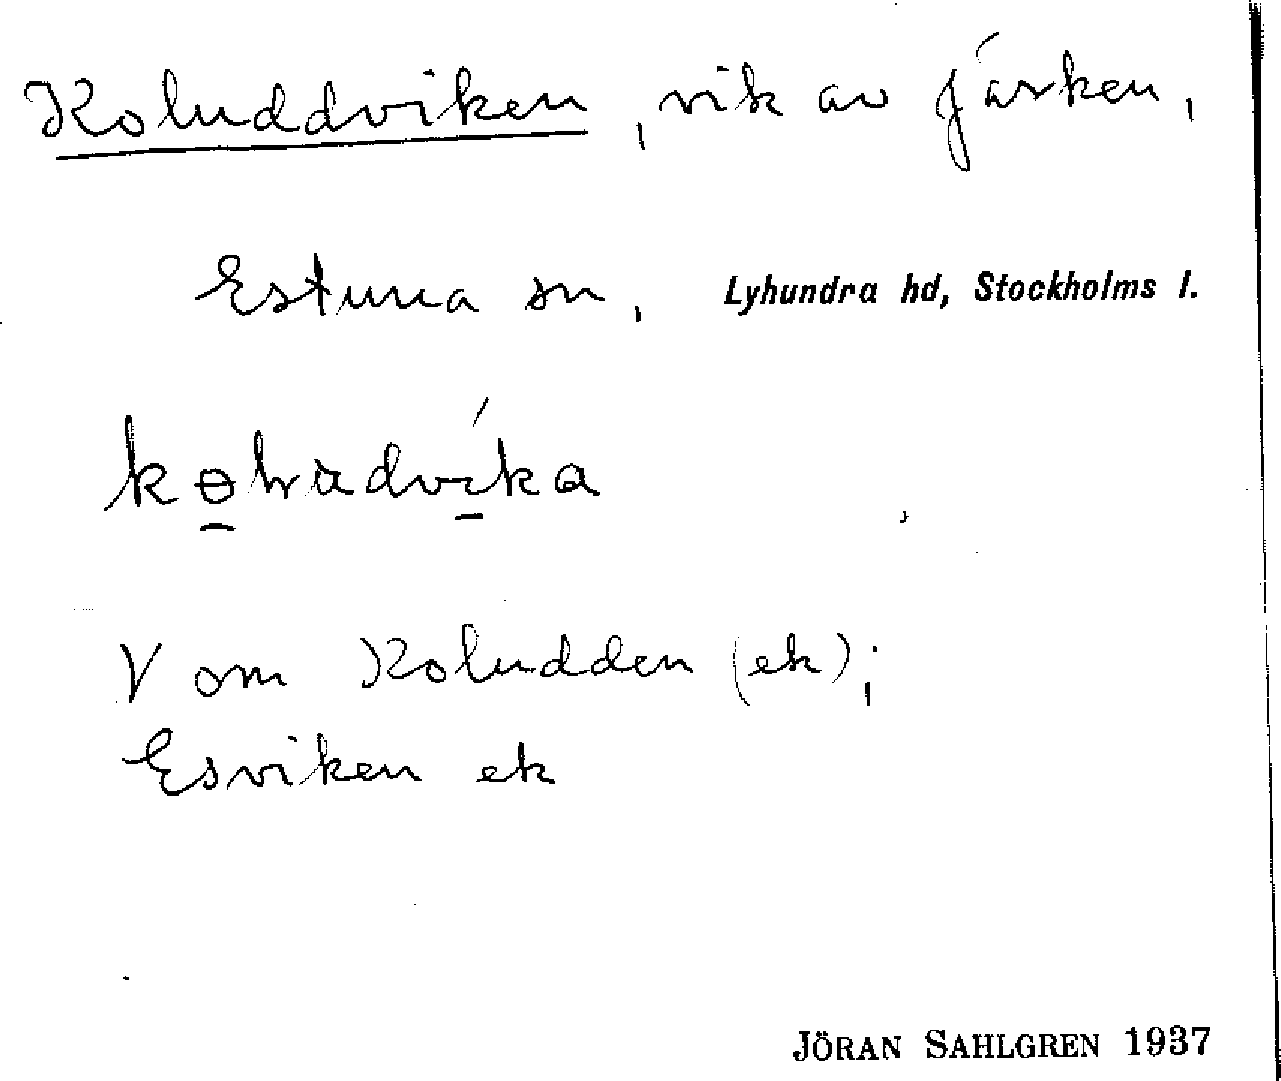 Koluddviken, vik av Järken,
Estuna sn, Lyhundra hd, Stockholms l.
V om Koludden (ek);
Esviken ek
JÖRAN SAHLGREN 1937